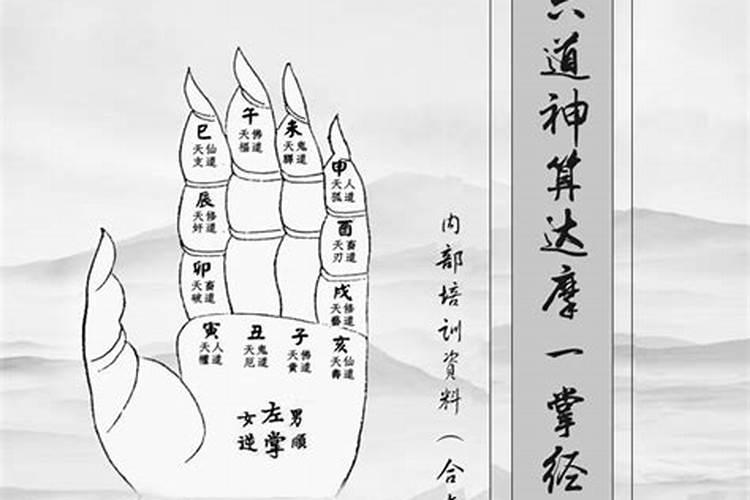 六道神算达摩一掌经
内部培训資料（合
午
天福
佛道
巳
天支
仙道
未
天驛
鬼道
申
天孤
人道
辰
天奸
修道
酉
天刃
畜道
卯
天破
畜道
戌
天藝
修道
寅
天權
人道
丑
天厄
鬼道
子
天貴
佛道
亥
天壽
仙道
女逆
左掌
男順